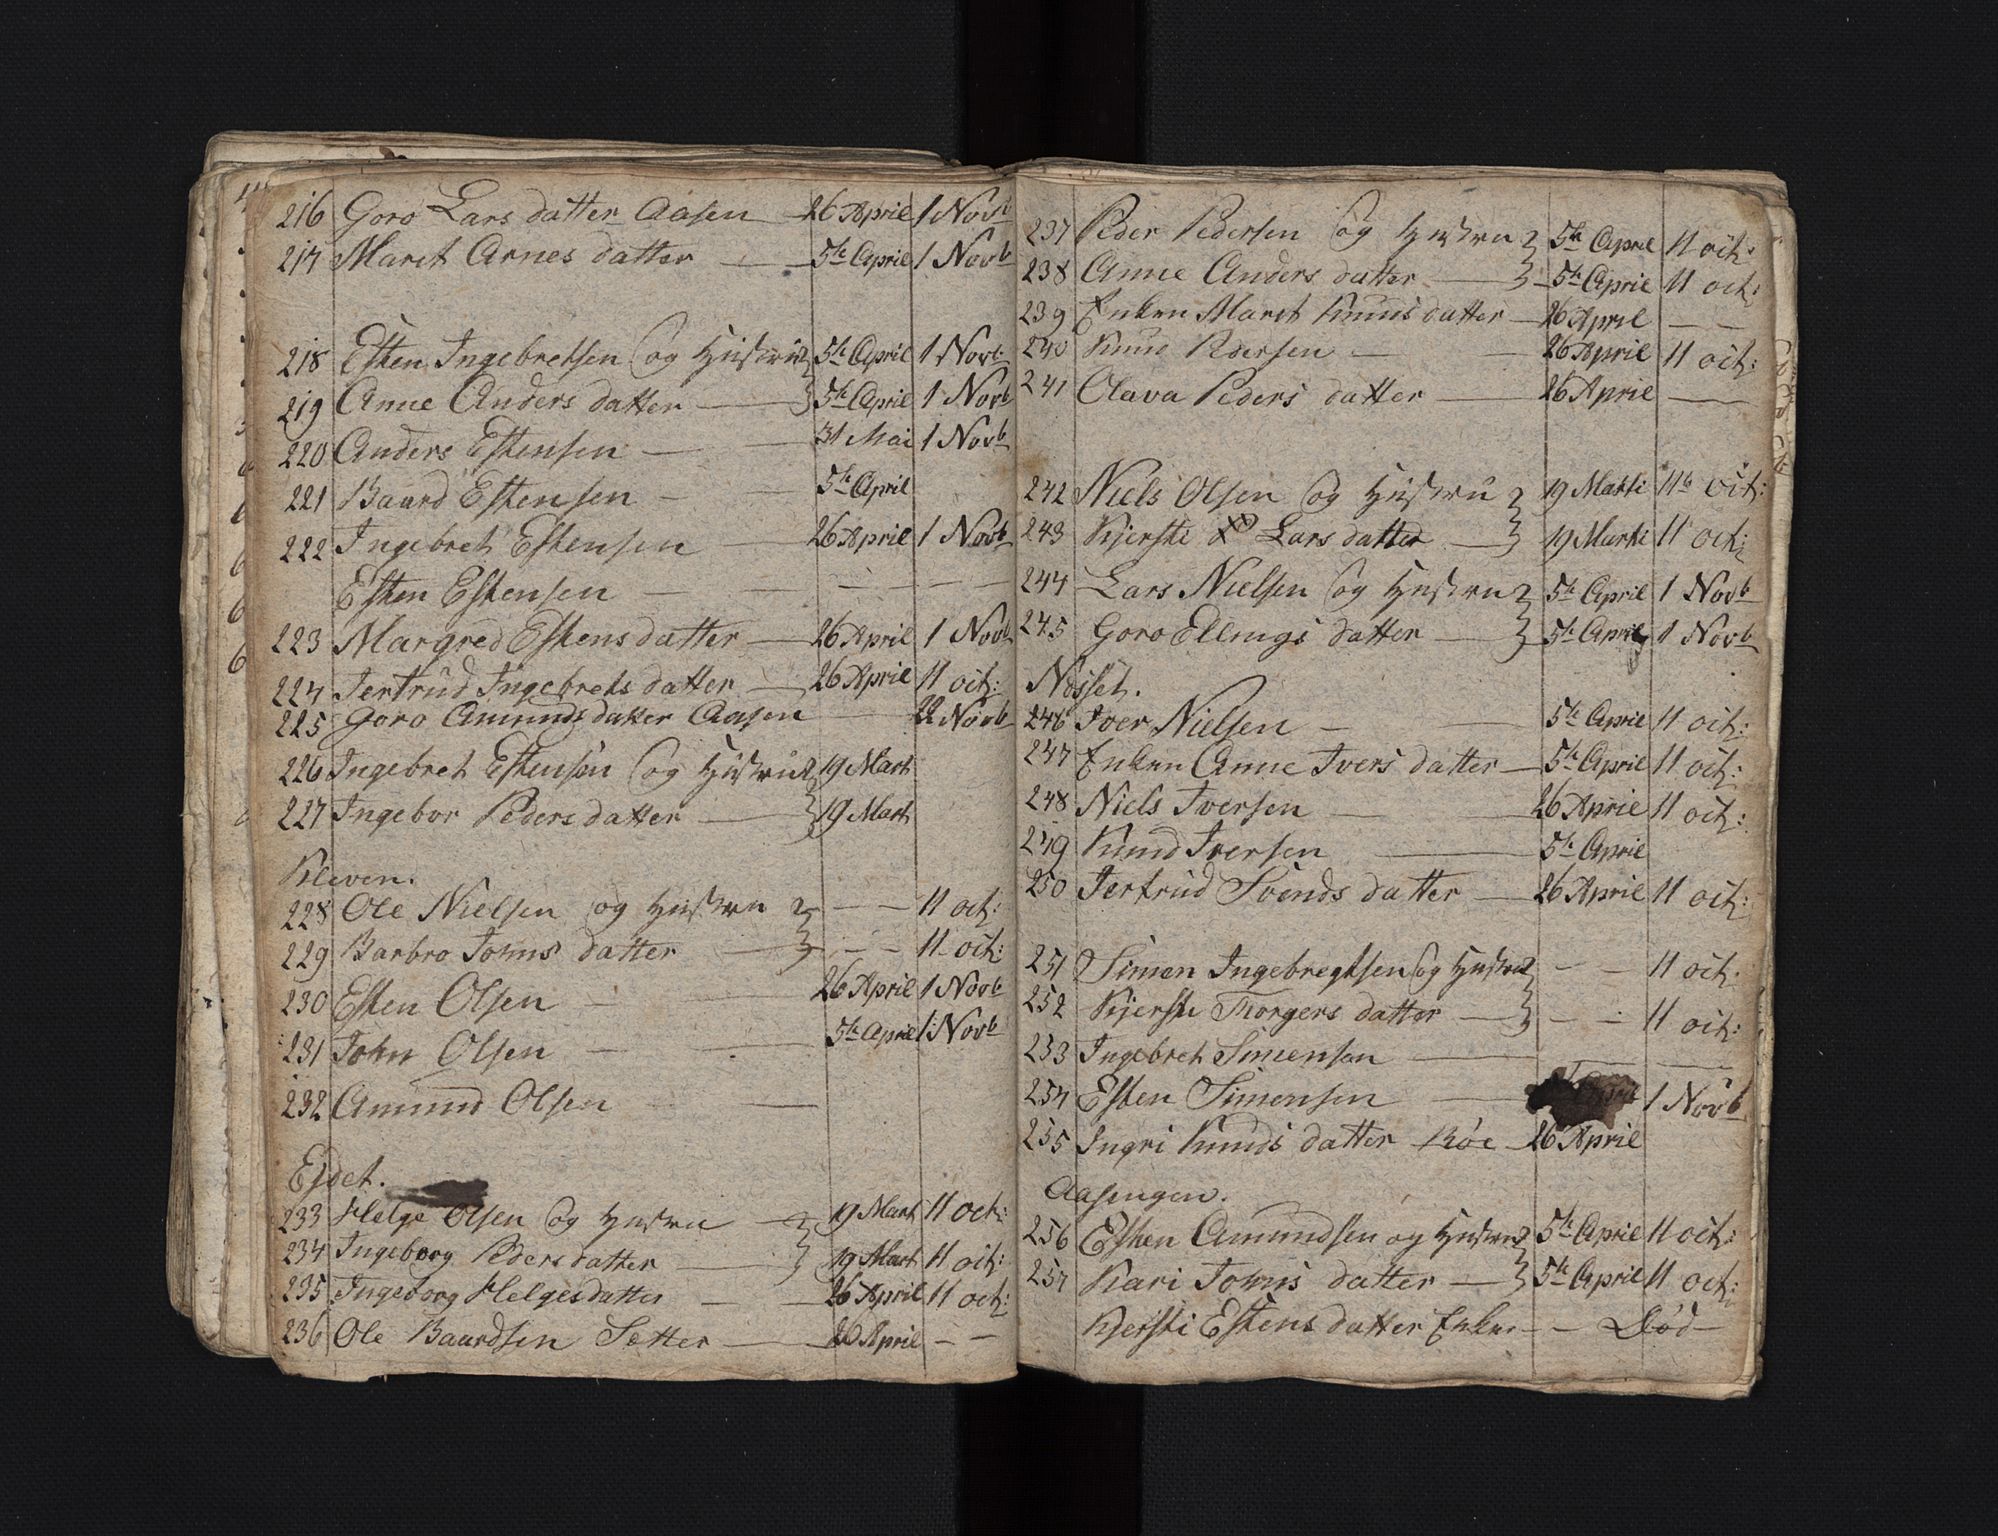 216 Goro Lars datter Aasen — 26 April 1 Novb
217 Marit Arnes datter — 5te April 1 Novb
218 Esten Ingebretsen og Hustru 5te April 1 Novb:
219 Anne Anders datter — 5te April 1 Novb
220 Anders Estensen — 31 Mai 1 Novb
221 Baard Estensen — 5te April
222 Ingebret Estensen — 26 April 1 Novb
Esten Estensen — — — —
223 Margred Estens datter — 26 April 1 Novb
224 Jertrud Ingebrets datter — 26 April 11 oct:
225 Goro Amunds datter Aasen — 22 Novb
226 Ingebret Estensen og Hustru 19 Mart
227 Ingebor Peders datter — 19 Mart
Kleven.
228 Ole Nielsen og Hustru — — 11 oct:
229 Barbro Johns datter — — — 11 oct:
230 Esten Olsen — 26 April 1 Novb
231 John Olsen — 5te April 1 Novb
232 Amund Olsen — —
Ejdet.
233 Helge Olsen og Hustru — 19 Mart 11 oct:
234 Ingeborg Peders datter — 19 Mart 11 oct:
235 Ingeborg Helgesdatter — 26 April 11 oct:
236 Ole Baardsen Setter — 26 April — —
237 Peder Pedersen og Hustru 5te April 11 oct:
238 Anne Anders datter — 5te April 11 oct:
239 Enken Marit Knuds datter — 26 April — —
240 Knud Pedersen — 26 April 11 oct:
241 Olava Peders datter — 26 April —
242 Niels Olsen og Hustru 19 Marti 11te oct:
243 Kjersti Lars datter — 19 Marti 11 oct:
244 Lars Nielsen og Hustru 5te April 1 Novb
245 Goro Ellings datter — 5te April 1 Novb
Nesset.
246 Iver Nielsen — 5te April 11 oct:
247 Enken Anne Ivers datter — 5te April 11 oct:
248 Niels Iversen — 26 April 11 oct:
249 Knud Iversen — 5te April
250 Jertrud Svends datter — 26 April 11 oct:
251 Simen Ingebregtsen og Hustru — — 11 oct.
252 Kjersti Thorgers datter — — — 11 oct:
253 Ingebret Simensen — — —
254 Esten Simensen — April 1 Novb
255 Ingri Knuds datter Röe — 26 April
Aasengen.
256 Esten Amundsen og Hustru 5te April 11 oct:
257 Kari Johns datter — 5te April 11 oct:
Kjersti Estens datter Enke — — Død —